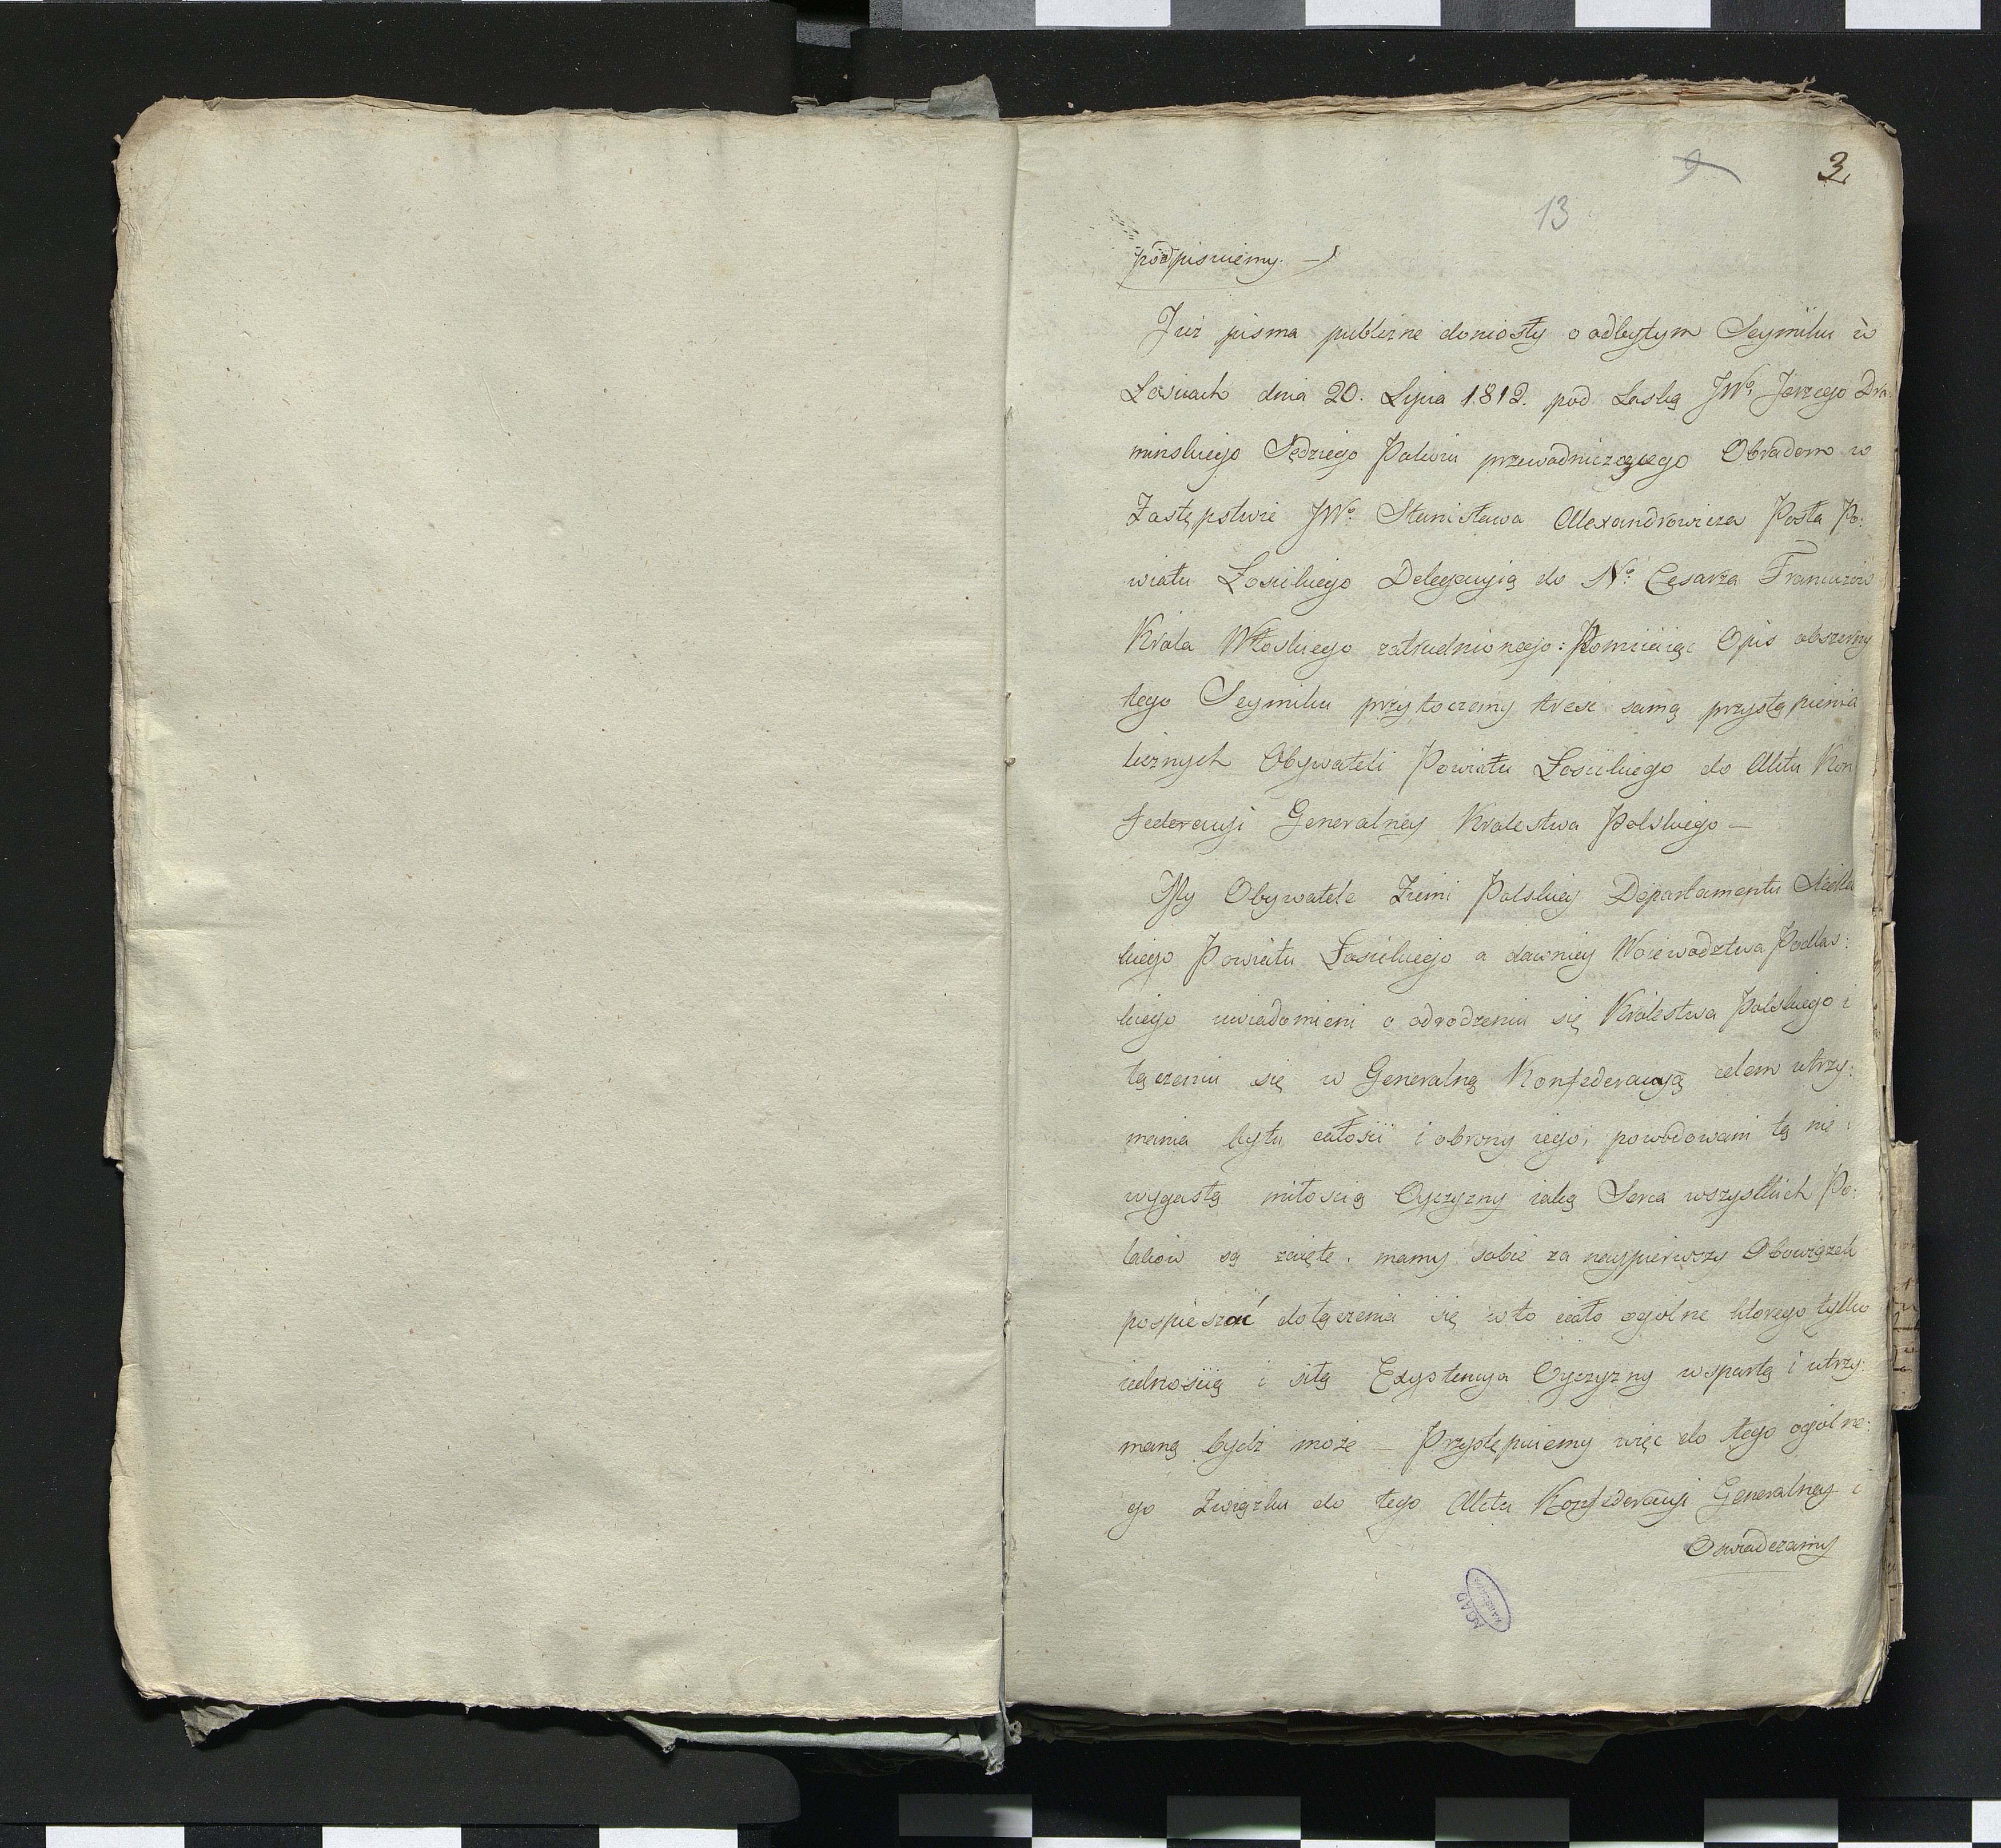 9
3
13
podpisuiemy. —
Już pisma publiczne doniosły o odbytym Seymiku w
Łosicach dnia 20. Lipca 1812. pod Laską JWo. Jerzego Dra:
minskiego Sędziego Pokoiu przewodniczącego Obradom w
Zastępstwie JWo: Stanisława Alexandrowicza Posła Po:
wiatu Łosickiego Delegacyią do No: Cesarza Francuzów
Króla Włoskiego zatrudnionego: Pomiiaiąc Opis obszerny
tego Seymiku przytoczemy tresc samą przystąpienia
licznych Obywateli Powiatu Łosickiego do Aktu Kon
federacyi Generalney Krolestwa Polskiego —
My Obywatele Ziemi Polskiey Departamentu Siedlec
kiego Powiatu Łosickiego a dawniey Woiewodztwa Podlas:
kiego uwiadomieni o odrodzeniu się Krolestwa Polskiego i
łączeniu się w Generalną Konfederacyą celem utrzy:
mania bytu całosci i obrony iego, powodowani tą nie:
wygasłą miłoscią Oyczyzny iaką Serca wszystkich Po:
laków są zaięte, mamy sobie za naypierwszy Obowiązek
pospieszać do łączenia się w to ciało ogolne ktorego tylko
iednoscią i siłą Exystencya Oyczyzny wspartą i utrzy:
maną bydz może — Przystępuiemy więc do tego ogolne:
go Związku do tego Aktu Konfederacyi Generalney i
Oswiadczamy
AGAD
WARSZAWA